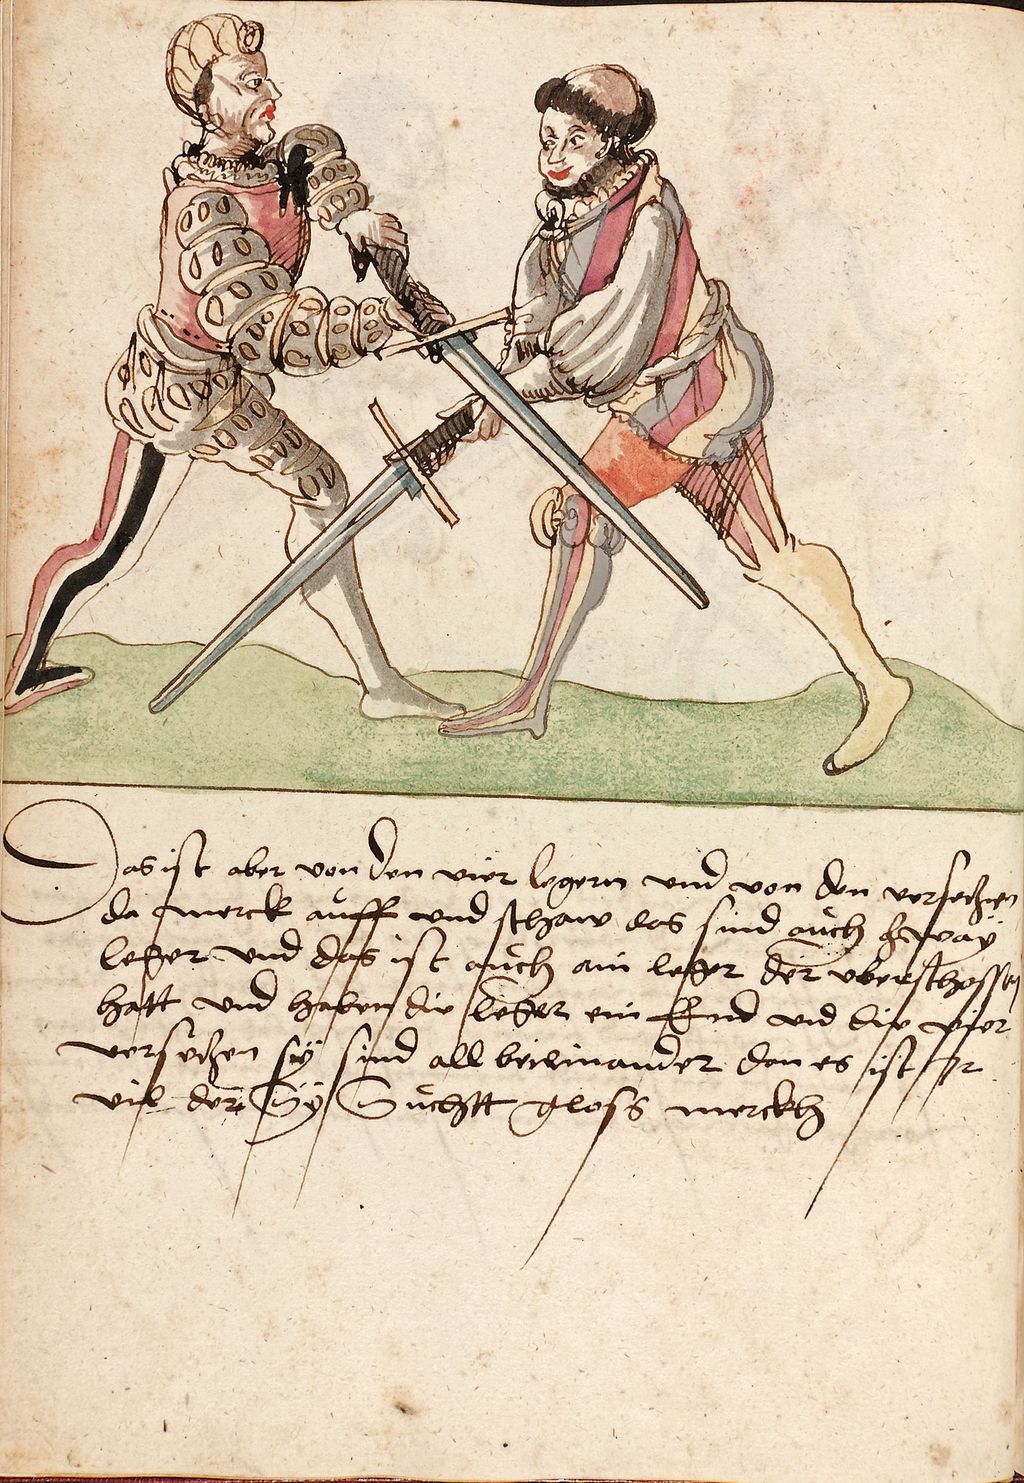 Das ist aber von den vier legern vnd von den versechen
da merck auff vnd schaw das sind auch zway
leger vnd das ist auch ain leger der vberschossen
hatt vnd haben die leger ein End vnd die vier
versechen sy sind all beieinander dan es ist Ir
vil der Sy Suchtt gloss merckh